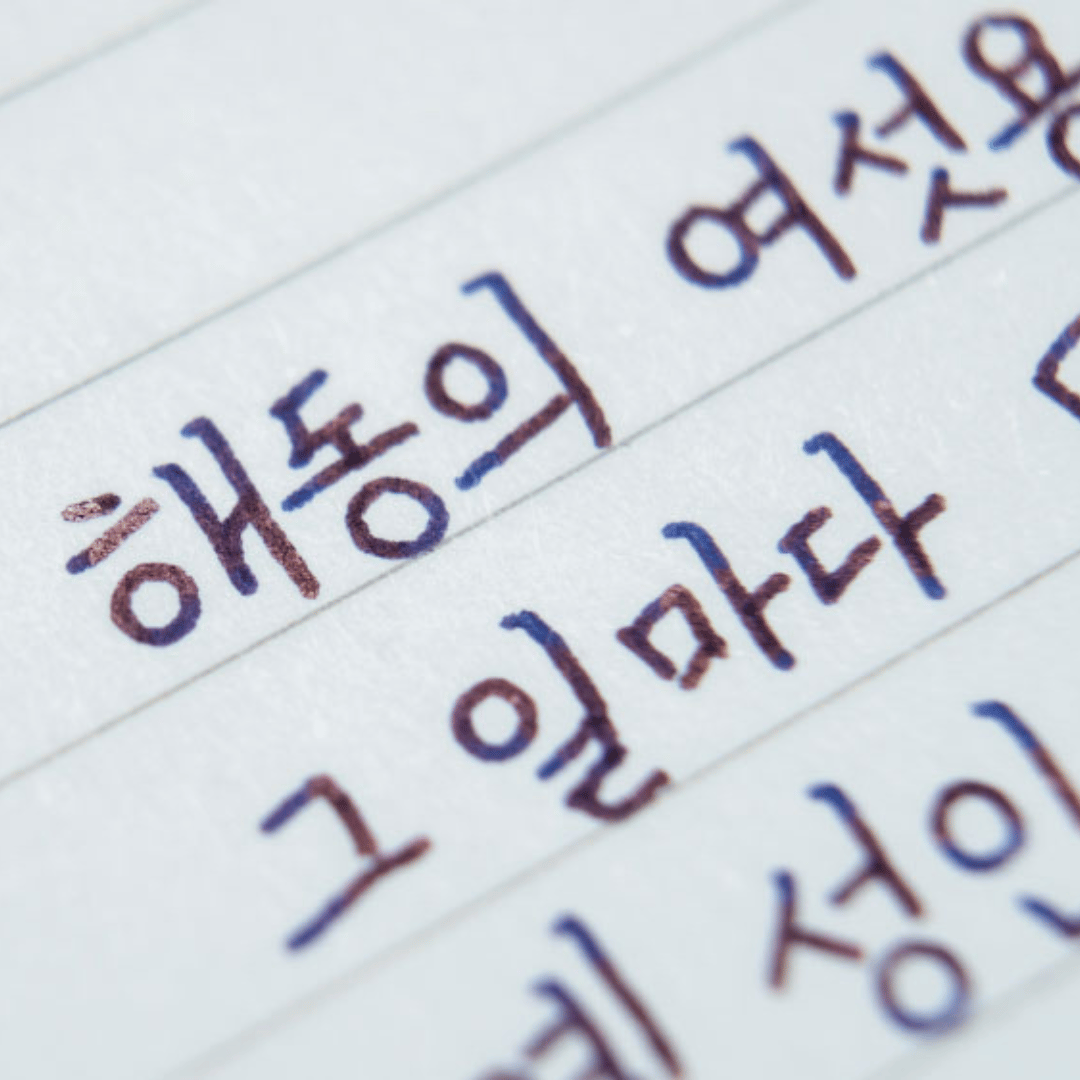 해동의 여섯용
그 일마다
성인